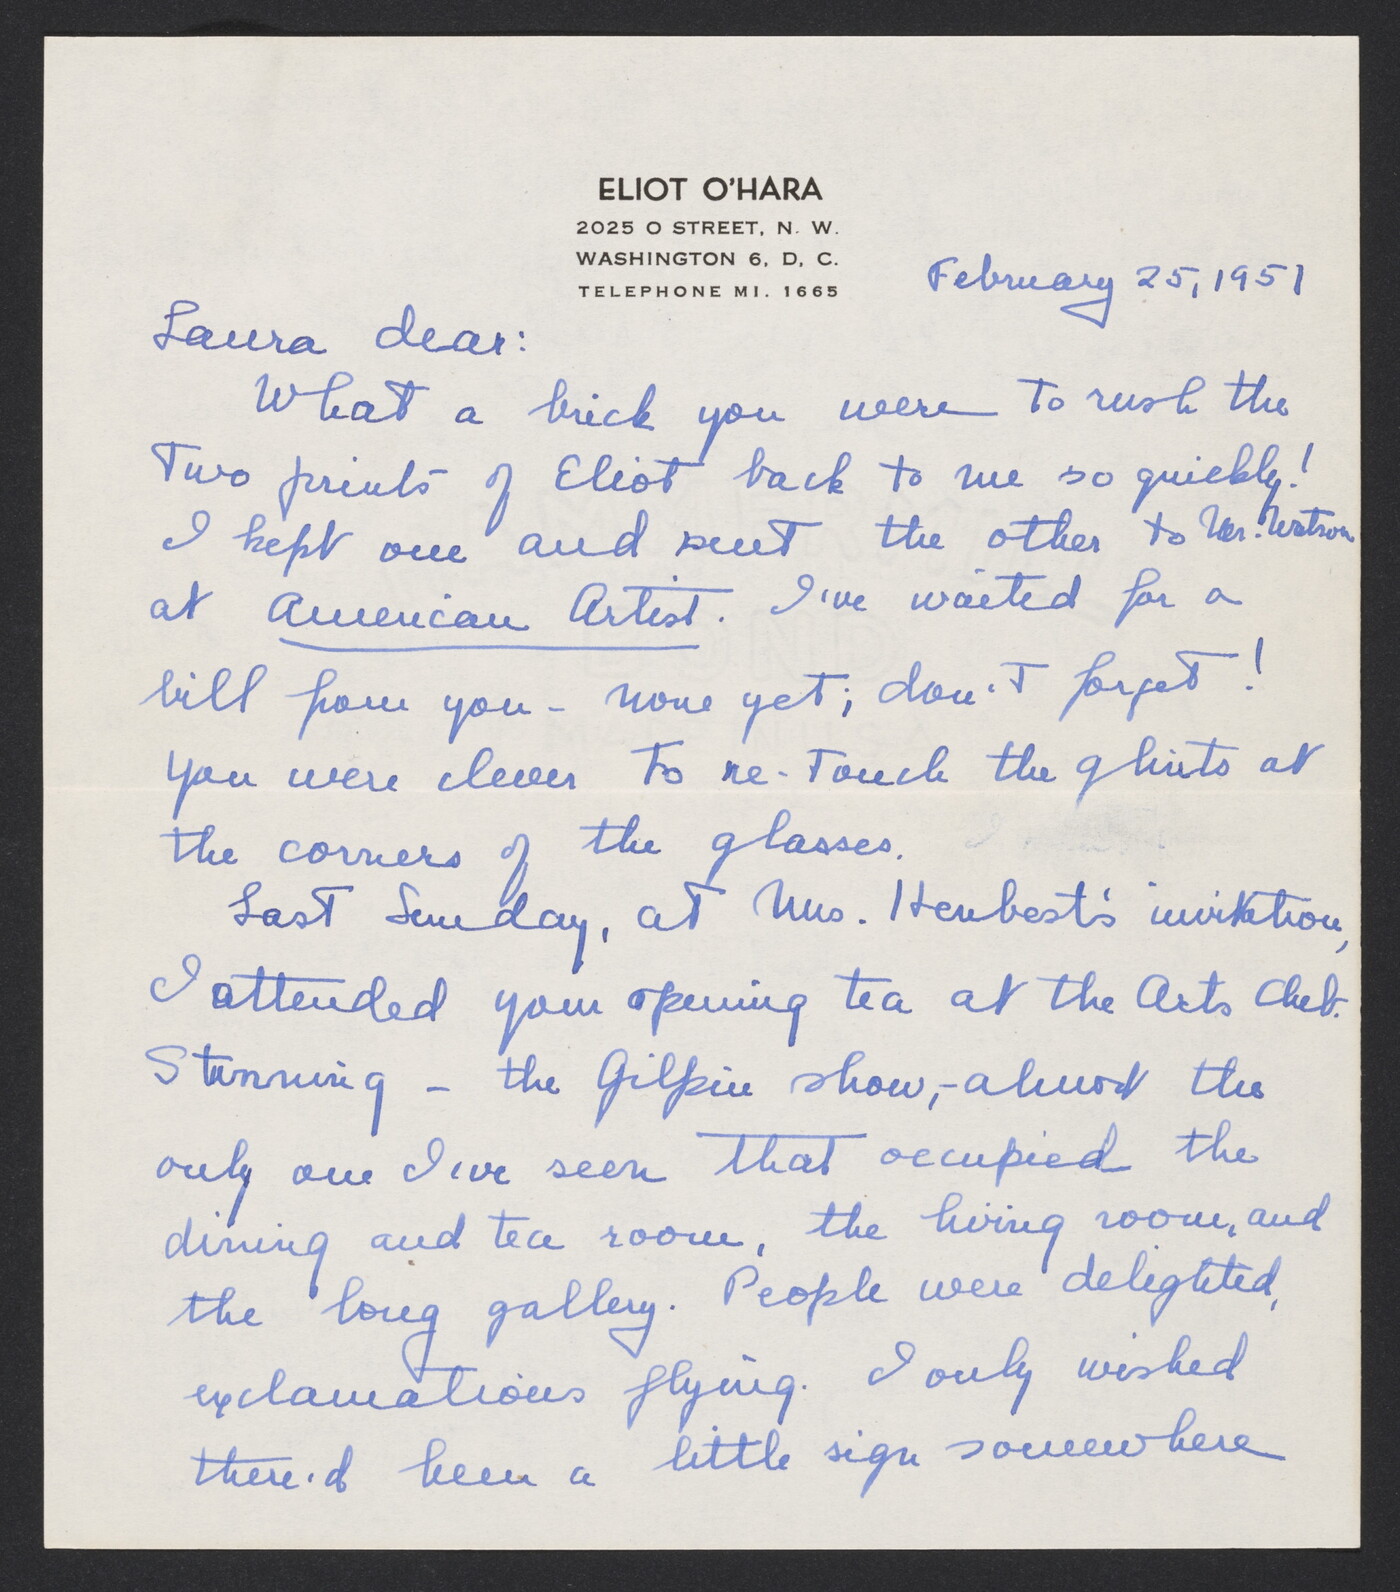 ELIOT O'HARA
2025 O STREET, N. W.
WASHINGTON 6, D. C.
TELEPHONE MI. 1665
February 25, 1951
Laura dear:
What a brick you were to rush the
two prints of Eliot back to me so quickly!
I kept one and sent the other to Mr. Watson
at American Artist. I've waited for a
bill from you - none yet; don't forget!
You were clever to re-touch the glints at
the corners of the glasses.
Last Sunday, at Mrs. Henbest's invitation,
I attended your opening tea at the Arts Club.
Stunning - the Gilpin show, - almost the
only one I've seen that occupied the
dining and tea room, the living room, and
the long gallery. People were delighted,
exclamations flying. I only wished
there'd been a little sign somewhere